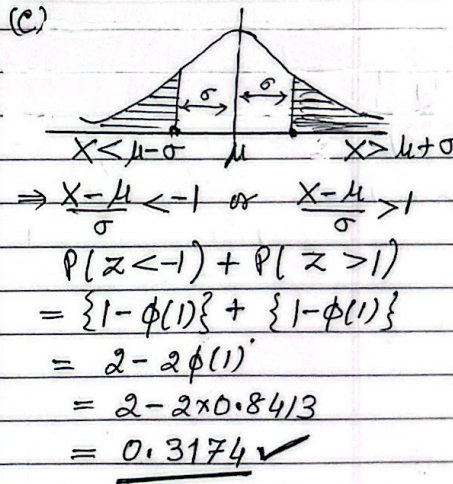 (c)
σ σ
X < μ-σ μ X > μ+σ
⇒ X-μ/σ < -1 or X-μ/σ > 1
P( Z < -1) + P( Z > 1)
= {1-φ(1)} + {1-φ(1)}
= 2 - 2φ(1)
= 2 - 2×0.8413
= 0.3174 ✓